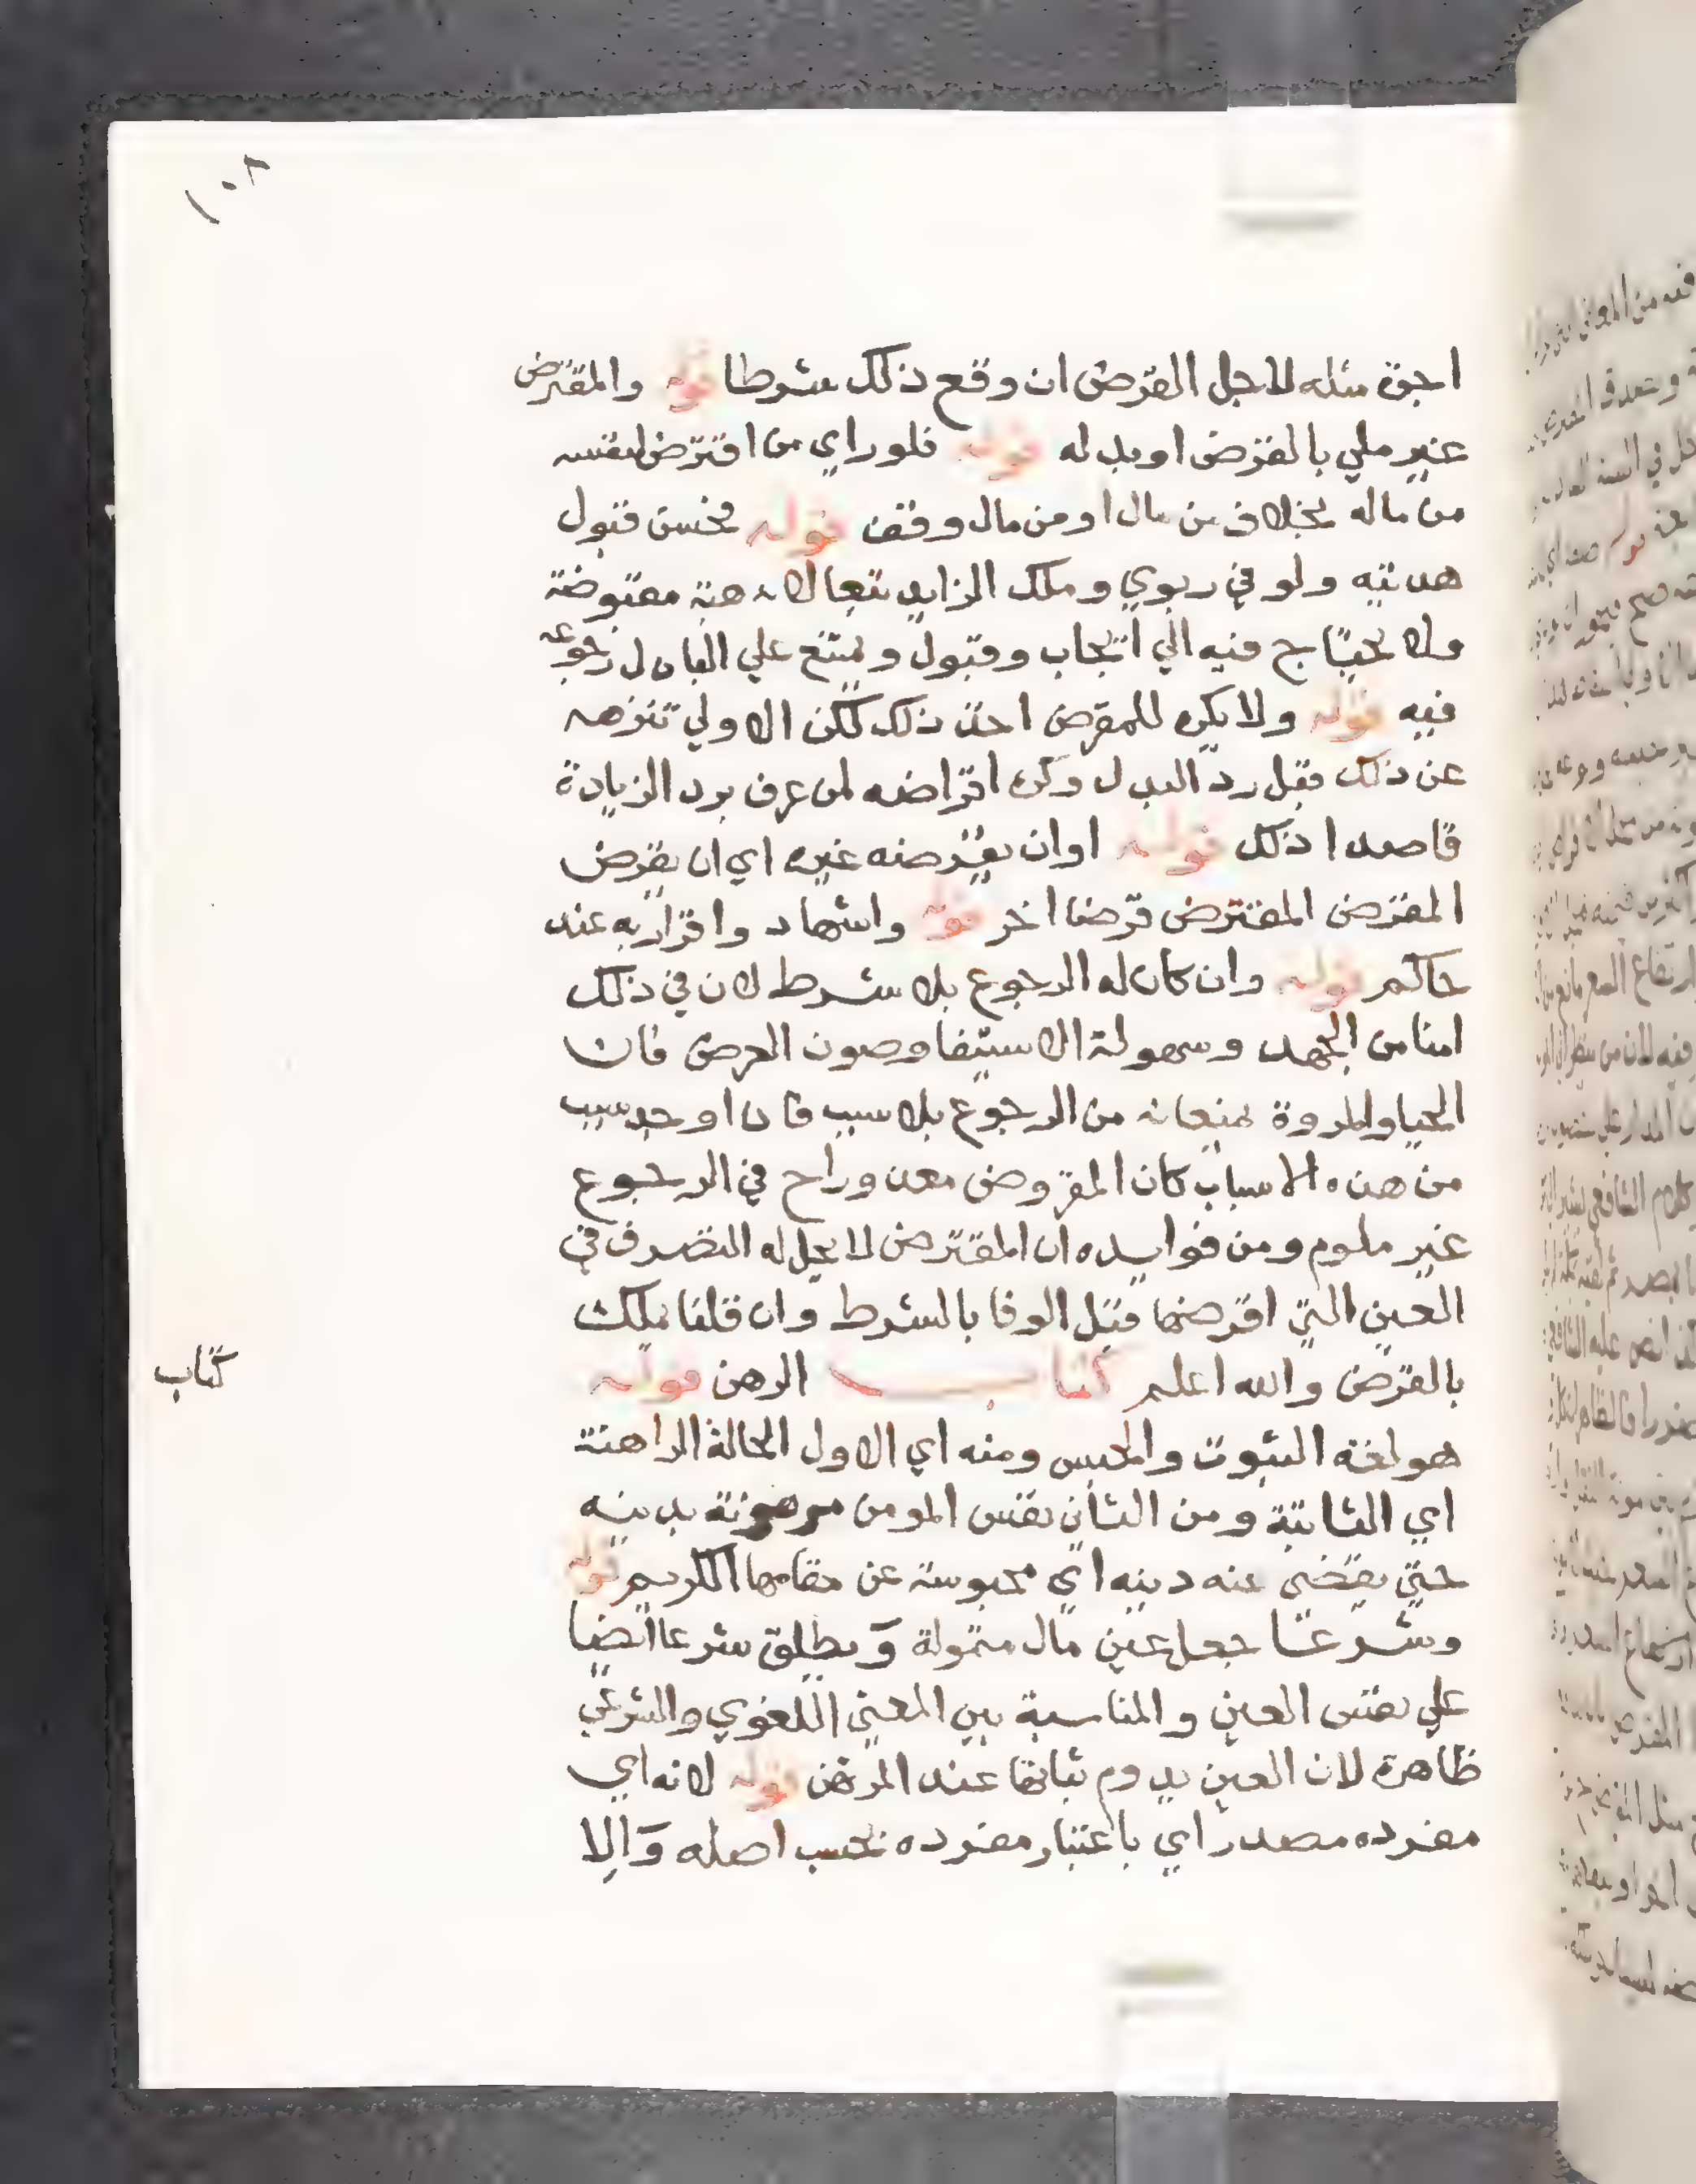 ١٠٨
اجرة مثله لاجل القرض ان وقع ذلك شرطا قوله والمقترض
غير ملي بالقرض او بدله قوله فلو راي من اقترض لنفسه
من ماله بخلاف من مال او من مال وقف قوله فحسن قبول
هديته ولو في ربوي وملك الزايد تبعا لانه هبة مقبوضة
ولا يحتاج فيه الي ايجاب وقبول ويمتنع علي الباذل رجوعه
فيه قوله ولا يكره للمقرض اخذ ذلك لكن الاولي تنزهه
عن ذلك قبل رد البدل وكره اقراضه لمن عرف برد الزيادة
قاصدا ذلك قوله او ان يقرضنه غيره اي ان يقرض
المقرض المقترض قرضا اخر قوله واشهاد واقرار به عند
حاكم قوله وان كان له الرجوع بلا شرط لان في ذلك
امنا من الجهد وسهولة الاستيفا وصون العرض فان
الحيا والمروة يمنعانه من الرجوع بلا سبب فاذا وجد سبب
من هذه الاسباب كان المقروض معذورا ح في الرجوع
غير ملوم ومن فوايده ان المقترض لا يحل له التصرف في
العين التي اقرضها قبل الوفا بالشرط وان قلنا يملك
بالقرض والله اعلم كتاب الرهن قوله
كتاب
هو لغة الثبوت والحبس ومنه اي الاول الحالة الراهنة
اي الثابتة ومن الثاني نفس المومن مرهونة بدينه
حتي يقضي عنه دينه اي محبوسة عن مقامها الكريم قوله
وشرعا جعل عين مال متمولة ويطلق شرعا ايضا
علي نفس العين والمناسبة بين المعني اللغوي والشرعي
ظاهرة لان العين يدوم ثباتها عند المرتهن قوله لانه اي
مفرده مصدر اي باعتبار مفرده بحسب اصله والا